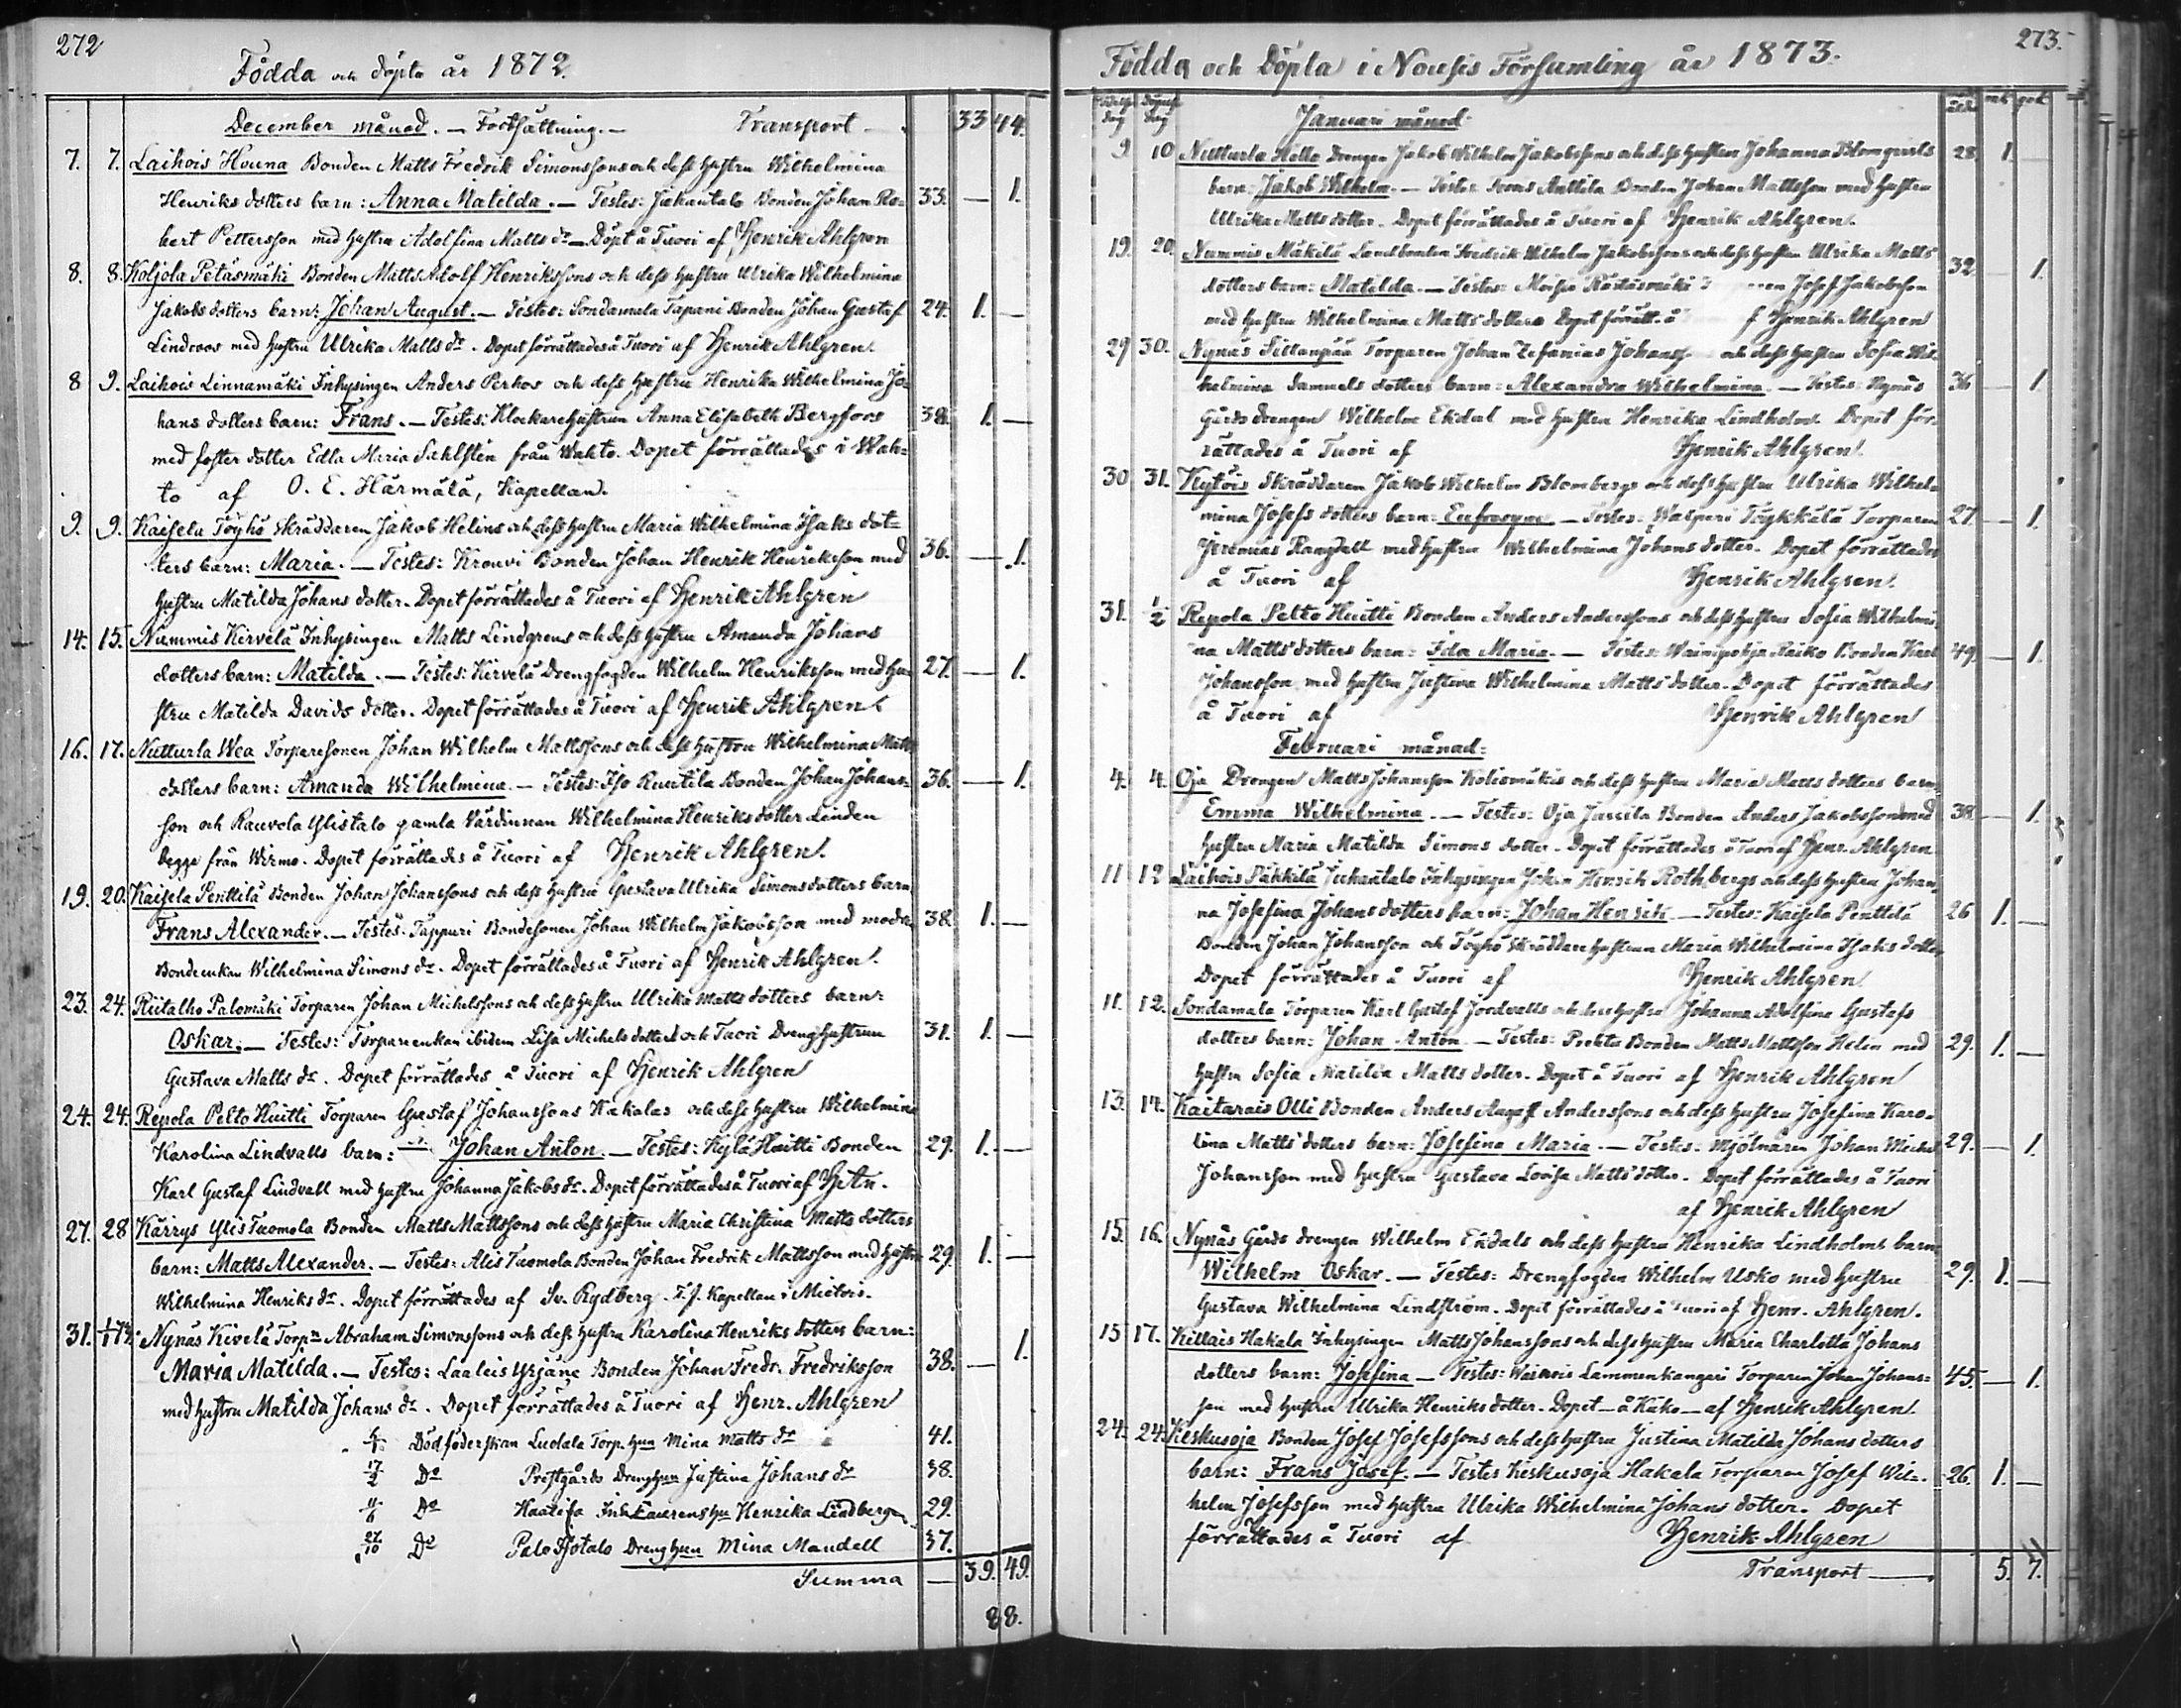 272
Födda och döpta år 1872.
December månad. — Fortsättning. — Transport — 33 44.
7. 7. Laihois Houna Bonden Matts Fredrik Simonssons och dess hustru Wilhelmina
Henriks dotters barn: Anna Matilda. — Testes: Jakautalo Bonden Johan Ro= 33. — 1.
bert Pettersson med hustru Adolfina Matts dr — Döpt å Tuori af Henrik Ahlgren
8. 8. Koljola Petäsmäki Bonden Matts Adolf Henrikssons och dess hustru Ulrika Wilhelmina
Jakobs dotters barn: Johan August. — Testes: Sondamala Tapani Bonden Johan Gustaf 24. 1. —
Lindroos med hustru Ulrika Matts dr. Dopet förrättades å Tuori af Henrik Ahlgren.
8 9. Laihois Linnamäki Inhysingen Anders Perhos och dess hustru Henrika Wilhelmina Jo=
hans dotters barn: Frans. — Testes: Klockarehustrun Anna Elisabeth Bergfors 38. 1. —
med foster dotter Edla Maria Sahlstén från Wahto. Dopet förrättades i Wah=
to af O. E. Härmälä, Kapellan.
9. 9. Kaisela Töyhö Skräddaren Jakob Helins och dess hustru Maria Wilhelmina Isaks dot=
ters barn: Maria. — Testes: Krouvi Bonden Johan Henrik Henriksson med 36. — 1.
hustru Matilda Johans dotter. Dopet förrättades å Tuori af Henrik Ahlgren
14. 15. Nummis Kirvelä Inhysingen Matts Lindgrens och dess hustru Amanda Johans
dotters barn: Matilda. — Testes: Kirvelä Drengfogden Wilhelm Henriksson med hu= 27. — 1.
stru Matilda Davids dotter. Dopet förrättades å Tuori af Henrik Ahlgren
16. 17. Nutturla Wea Torparesonen Johan Wilhelm Mattssons och dess hustru Wilhelmina Matts
dotters barn: Amanda Wilhelmina. — Testes: Iso Ruutila Bonden Johan Johans= 36. — 1.
son och Rauvola Ylistalo gamla värdinnan Wilhelmina Henriks dotter Linden
begge från Wirmo. Dopet förrättades å Tuori af Henrik Ahlgren.
19. 20. Kaisela Penttilä Bonden Johan Johanssons och dess hustru Gustava Ulrika Simons dotters barn
Frans Alexander. — Testes: Tappuri Bondesonen Johan Wilhelm Jakobsson med modren 38. 1. —
Bondeenkan Wilhelmina Simons dr. Dopet förrättades å Tuori af Henrik Ahlgren.
23. 24. Riitalho Palomäki Torparen Johan Michelssons och dess hustru Ulrika Matts dotters barn:
Oskar. — Testes: Torpareenkan ibidem Lisa Michels dotter och Tuori Drenghustrun 31. 1. —
Gustava Matts dr. Dopet förrättades å Tuori af Henrik Ahlgren
24. 24. Repola Pelto Huitti Torparen Gustaf Johanssons Kakalas och dess hustru Wilhelmina
Karolina Lindvalls barn: Johan Anton. — Testes: Kylä Huitti Bonden 29. 1. —
Karl Gustaf Lindvall med hustru Johanna Jakobs dr. Dopet förrättades å Tuori af HAn.
27. 28 Kärrys Ylis Tuomola Bonden Matts Mattssons och dess hustru Maria Christina Matts dotters
barn: Matts Alexander. — Testes: Alis Tuomola Bonden Johan Fredrik Mattsson med hustru 29. 1. —
Wilhelmina Henriks dr. Dopet förrättades af Sv. Rydberg T.f. Kapellan i Mietois.
31. 1/1 73. Nynäs Kivelä Torpn Abraham Simonssons och dess hustru Karolina Henriks dotters barn:
Maria Matilda. — Testes: Laaleis Yrjäne Bonden Johan Fredr. Fredriksson 38. — 1.
med hustru Matilda Johans dr. Dopet förrättades å Tuori af Henr. Ahlgren
Dödföderskan Ludala Torp. hun Mina Matts dr 41.
17/2 Do Prostgårds Drenghun Justina Johans dr 38.
11/6 Do Inh. Laurens hu Henrika Lindbergen 29.
27/10 Do Drenghun Mina Mandell 37.
Summa — 39. 49.
88.
Födda och Döpta i Nousis Församling år 1873. 273.
Januari månad:
9 10 Nutturla Drengen Jakob Wilhelm Jakobssons och dess hustru Johanna Blomqvists 28. 1.
barn: Jakob Wilhelm. — Testes: Anttila Bonden Johan Mattsson med hustru
Ulrika Matts dotter. Dopet förrättades å Tuori af Henrik Ahlgren.
19. 20. Nummis Mäkilä Landbonden Fredrik Wilhelm Jakobssons och dess hustru Ulrika Matts
dotters barn: Matilda. — Testes: Josef Jakobsson 32 — 1.
med hustru Wilhelmina Matts dotter. Dopet förrätt. å f Henrik Ahlgren
29 30. Nynäs Siltanpää Torparen Johan Zefanias Johanss och dess hustru Sofia Wil=
helmina Samuels dotters barn: Alexandra Wilhelmina. — Testes: Nynäs 36 — 1.
Gårdsdrengen Wilhelm Ekdal med hustru Henrika Lindholm. Dopet för=
rättades å Tuori af Henrik Ahlgren.
30 31. Kytöis Skräddaren Jakob Wilhelm Blombergs och dess hustru Ulrika Wilhel=
mina Josefs dotters barn: Eufrosyne — Testes: Töykkälä Torparen 27. — 1.
Jeremias Rangdell med hustru Wilhelmina Johans dotter. Dopet förrättades
å Tuori af Henrik Ahlgren.
31. 1/2 Repola Pelto Huitti Bonden Anders Anderssons och dess hustru Sofia Wilhelmi=
na Matts dotters barn: Ida Maria. — Testes: Raiko Bonden Karl 49. — 1.
Johansson med hustru Justina Wilhelmina Matts dotter. Dopet förrättades
å Tuori af Henrik Ahlgren
Februari månad:
4. 4. Oja Drengen Matts Johansson Kolismäkis och dess hustru Maria Matts dotters barn:
Emma Wilhelmina. — Testes: Oja Jussila Bonden Anders Jakobsson med 38. — 1.
hustru Maria Matilda Simons dotter. Dopet förrättades å Tuori af Henr. Ahlgren
11 12 Laihois Päkkilä Juhantalo Inhysingen Johan Henrik Rothbergs och dess hustru Johan=
na Josefina Johans dotters barn: Johan Henrik — Testes: Kaisela Penttilä 26 1. —
Bonden Johan Johansson och Töyhö Skräddarehustrun Maria Wilhelmina Isaks dotter
Dopet förrättades å Tuori af Henrik Ahlgren
11. 12. Sondamala Torparen Karl Gustaf Jordvalls och dess hustru Johanna Adolfina Gustafs
dotters barn: Johan Anton — Testes: Bonden Matts Mattsson Helin med 29. 1. —
hustru Sofia Matilda Matts dotter. Dopet å Tuori af Henrik Ahlgren
13. 14. Kaitarais Olli Bonden Anders August Anderssons och dess hustru Josefina Karo=
lina Matts dotters barn: Josefina Maria. — Testes: Mjölnaren Johan Michel 29. — 1.
Johansson med hustru Gustava Lovisa Matts dotter. Dopet förrättades å Tuori
af Henrik Ahlgren
15. 16. Nynäs Gårds drengen Wilhelm Ekdals och dess hustru Henrika Lindholms barn
Wilhelm Oskar. — Testes: Drengfogden Wilhelm Usko med hustru 29. 1. —
Gustava Wilhelmina Lindström. Dopet förrättades å Tuori af Henr. Ahlgren.
15 17. Killais Hakala Inhysingen Matts Johanssons och dess hustru Maria Charlotta Johans
dotters barn: Josefina — Testes: Lammenkangeri Torparen Johan Johans= 45. — 1.
son med hustru Ulrika Henriks dotter. Dopet — å Kako — af Henrik Ahlgren.
24. 24. Keskusoja Bonden Josef Josefssons och dess hustru Justina Matilda Johans dotters
barn: Frans Josef. — Testes Keskusoja Hakala Torparen Josef Wil= 26. 1. —
helm Josefsson med hustru Ulrika Wilhelmina Johans dotter. Dopet
förrättades å Tuori af Henrik Ahlgren
Transport — 5. 7.